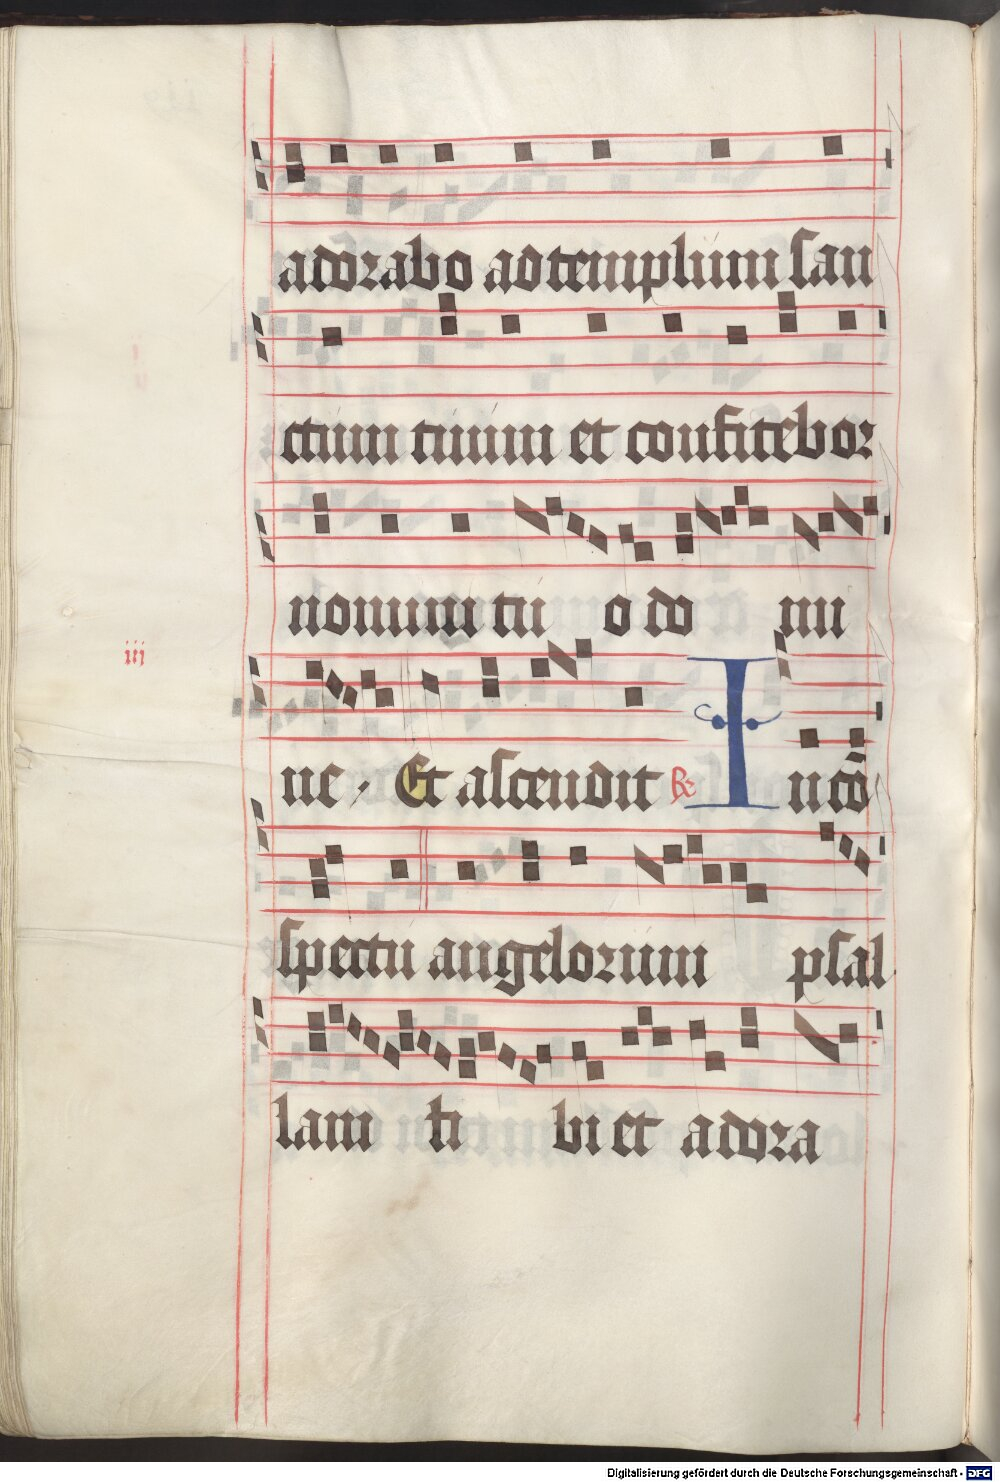 adorabo ad templum san
ctum tuum et confitebor
nomini tuo do mi
iii
ne, Et ascendit ℟ In cō
spectu angelorum psal
lam ti bi et adora
Digitalisierung gefördert durch die Deutsche Forschungsgemeinschaft - DFG